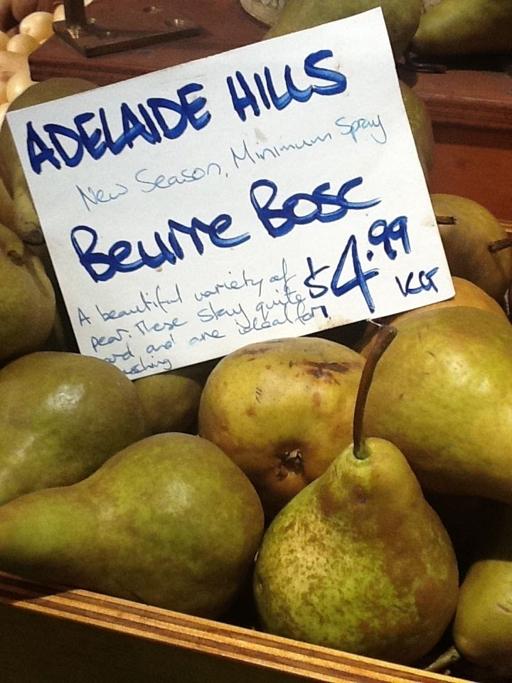 ADELAIDE HILLS
New Season, Minimum Spray
Beurre Bosc
$4.99
KG
A beautiful variety of
pear. These stay quite
hard and are ideal for